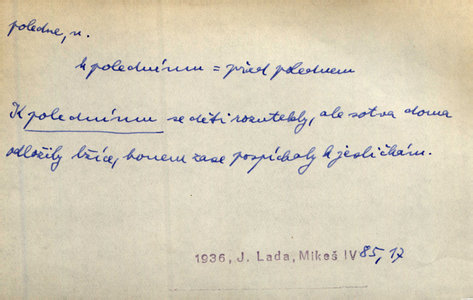 poledne, n.
k polednímu = před polednem
K polednímu se děti rozutekly, ale sotva doma
odložily lžíce, honem zase pospíchaly k jesličkám.
1936, J. Lada, Mikeš IV 85, 17